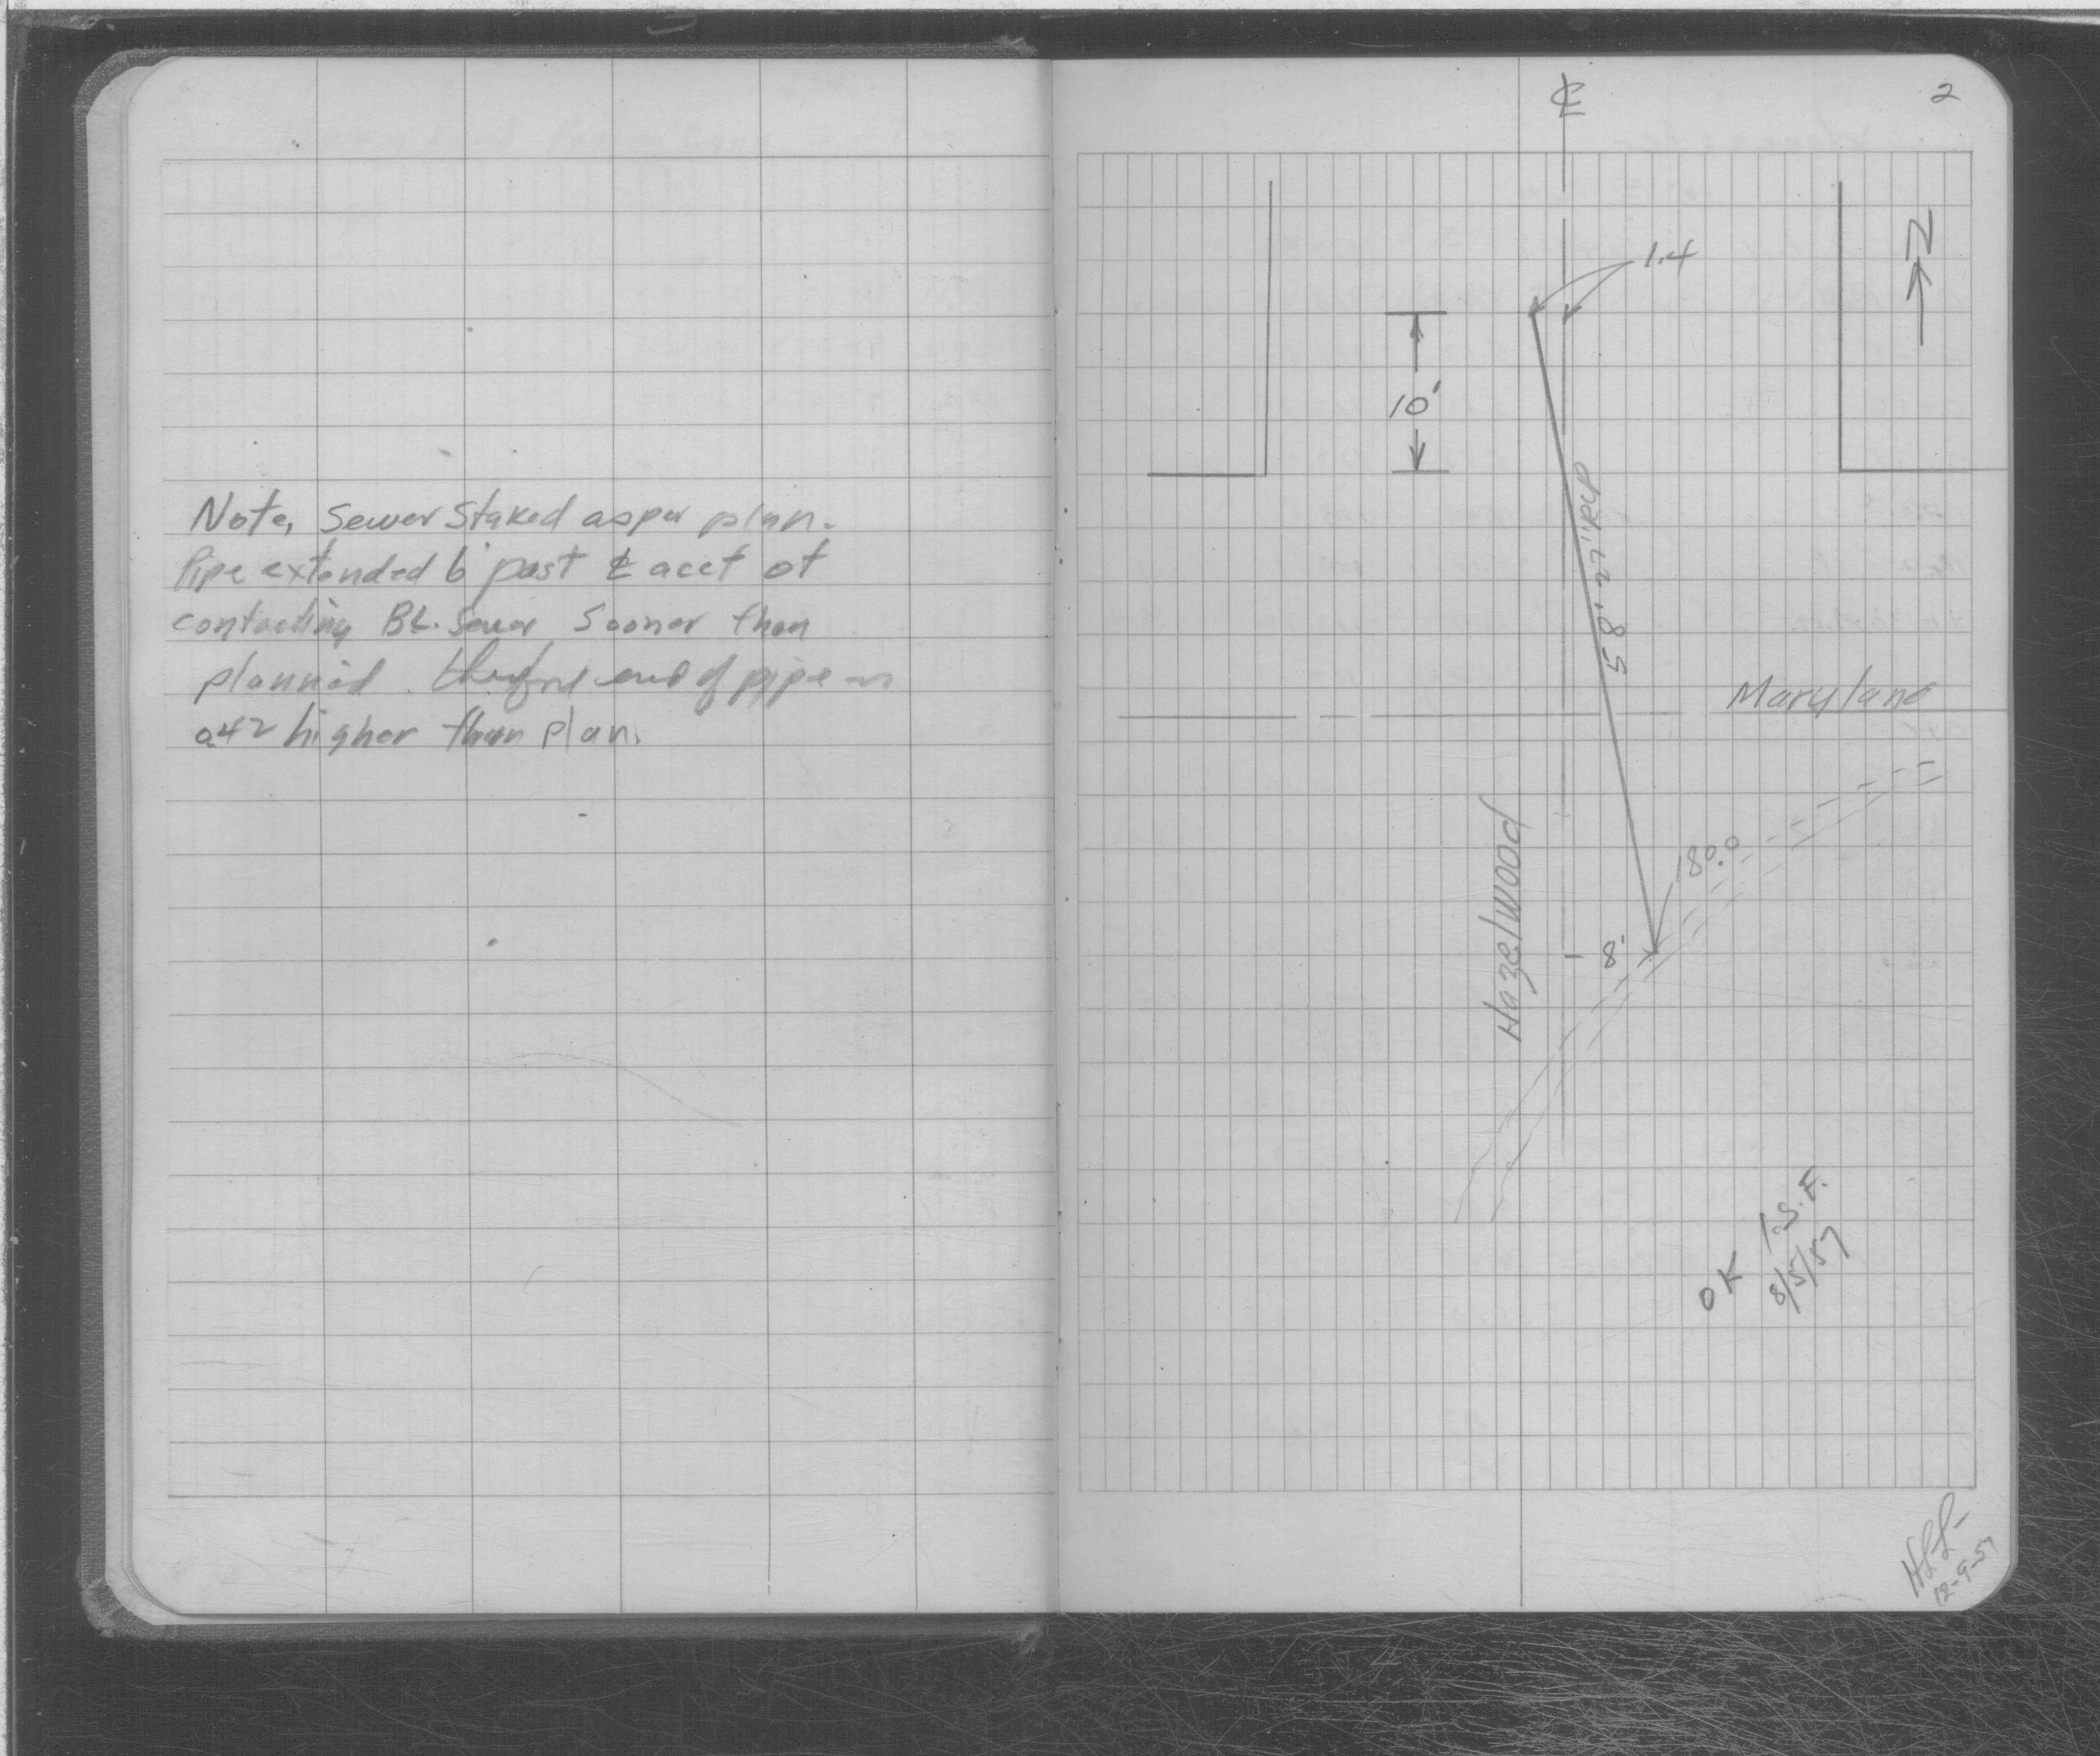 Note, Sewer Staked as per plan.
Pipe extended 6' past ℄ acct of
contacting BL. Sewer Sooner than
planned. therefore end of pipe
0.42 higher than plan.
℄
2
1.4
N
10'
58' 27" RCP
Maryland
180.0
8'
Hazelwood
OK
8/5/57
12-9-57